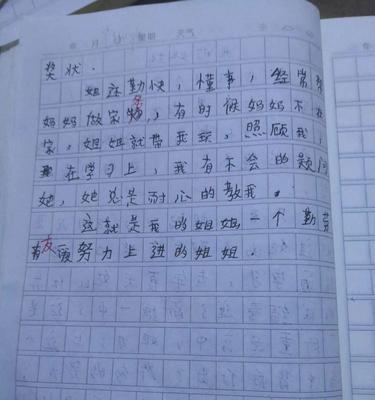 年 月 日 星期 天气
奖状.
她还勤快，懂事，经常帮
妈妈做家务，有的时候妈妈不在
家，姐姐就带我玩，照顾我，
在学习上，我有不会的题问
她，她总是耐心的教我。
这就是我的姐姐，一个勤劳
友爱努力上进的姐姐.